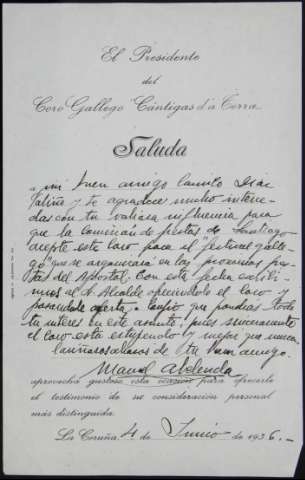 El Presidente
del
Coro Gallego "Cántigas d'a Terra"
Saluda
a mi buen amigo Camilo Díaz
Baliño y le agradece mucho interce-
das con tu valiosa influencia para
que la Comisión de fiestas de Santiago
acepte este Coro para el "festival galle-
go" que se organizará en las próximas fies-
tas del Apostol. Con esta fecha escribi-
mos al Sr. Alcalde ofreciéndole el Coro y
pasándole oferta. Confío que pondrás todo
tu interés en este asunto, pues sinceramente
el Coro está estupendo y mejor que nunca.
de tu buen amigo.
Manuel Abelenda
aprovecha gustoso esta ocasión para ofrecerle
el testimonio de su consideración personal
más distinguida.
La Coruña, 4 de Junio de 1936.-